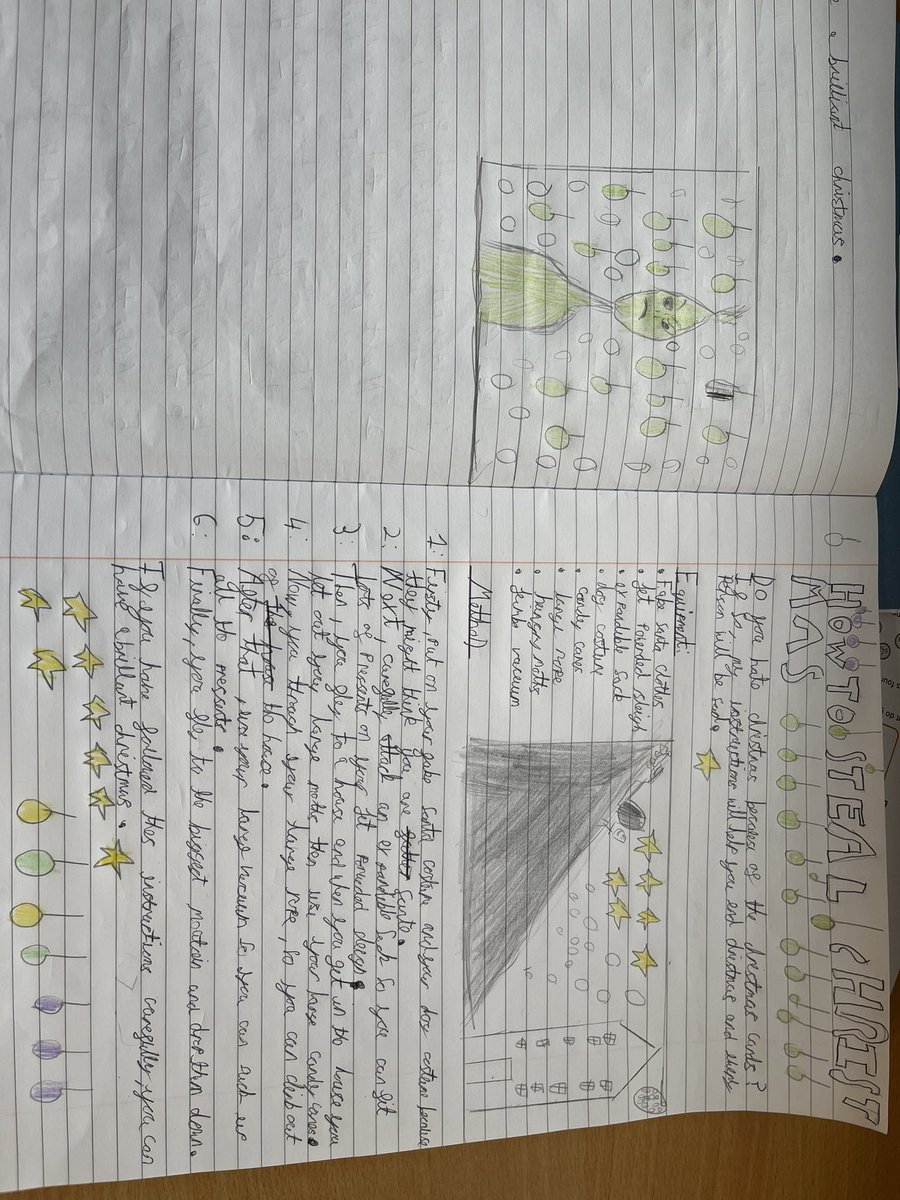 a brilliant christmas.
6
HOW TO STEAL CHRIST
MAS
Do you hate christmas because of the christmas cards?
If so, my instructions will help you end christmas and every
Person will be sad.
Equipment:
• Fake santa clothes
• Jet Powerded sleigh
• expandible Sack
• dog costume
• candy canes
• large rope
• hungry moths
• Jumbo vacuum
Method
1: Firstly, put on your fake Santa costume and your dog costume because
they might think you are Santa.
2: Next, carefully attach an expandible Sack so you can get
lots of Presents on your Jet Powded sleigh.
3: Then, you fley to a house and when you get in the house you
let out your hungry moths then use your large candy canes.
4: Now you through your large rope, so you can climb out
of the house.
5: After that, use your large vacuum so you can suck up
all the presents.
6: Finally, you fly to the biggest mountain and drop them down.
If you have followed these instructions carefully, you can
have a brilliant christmas.